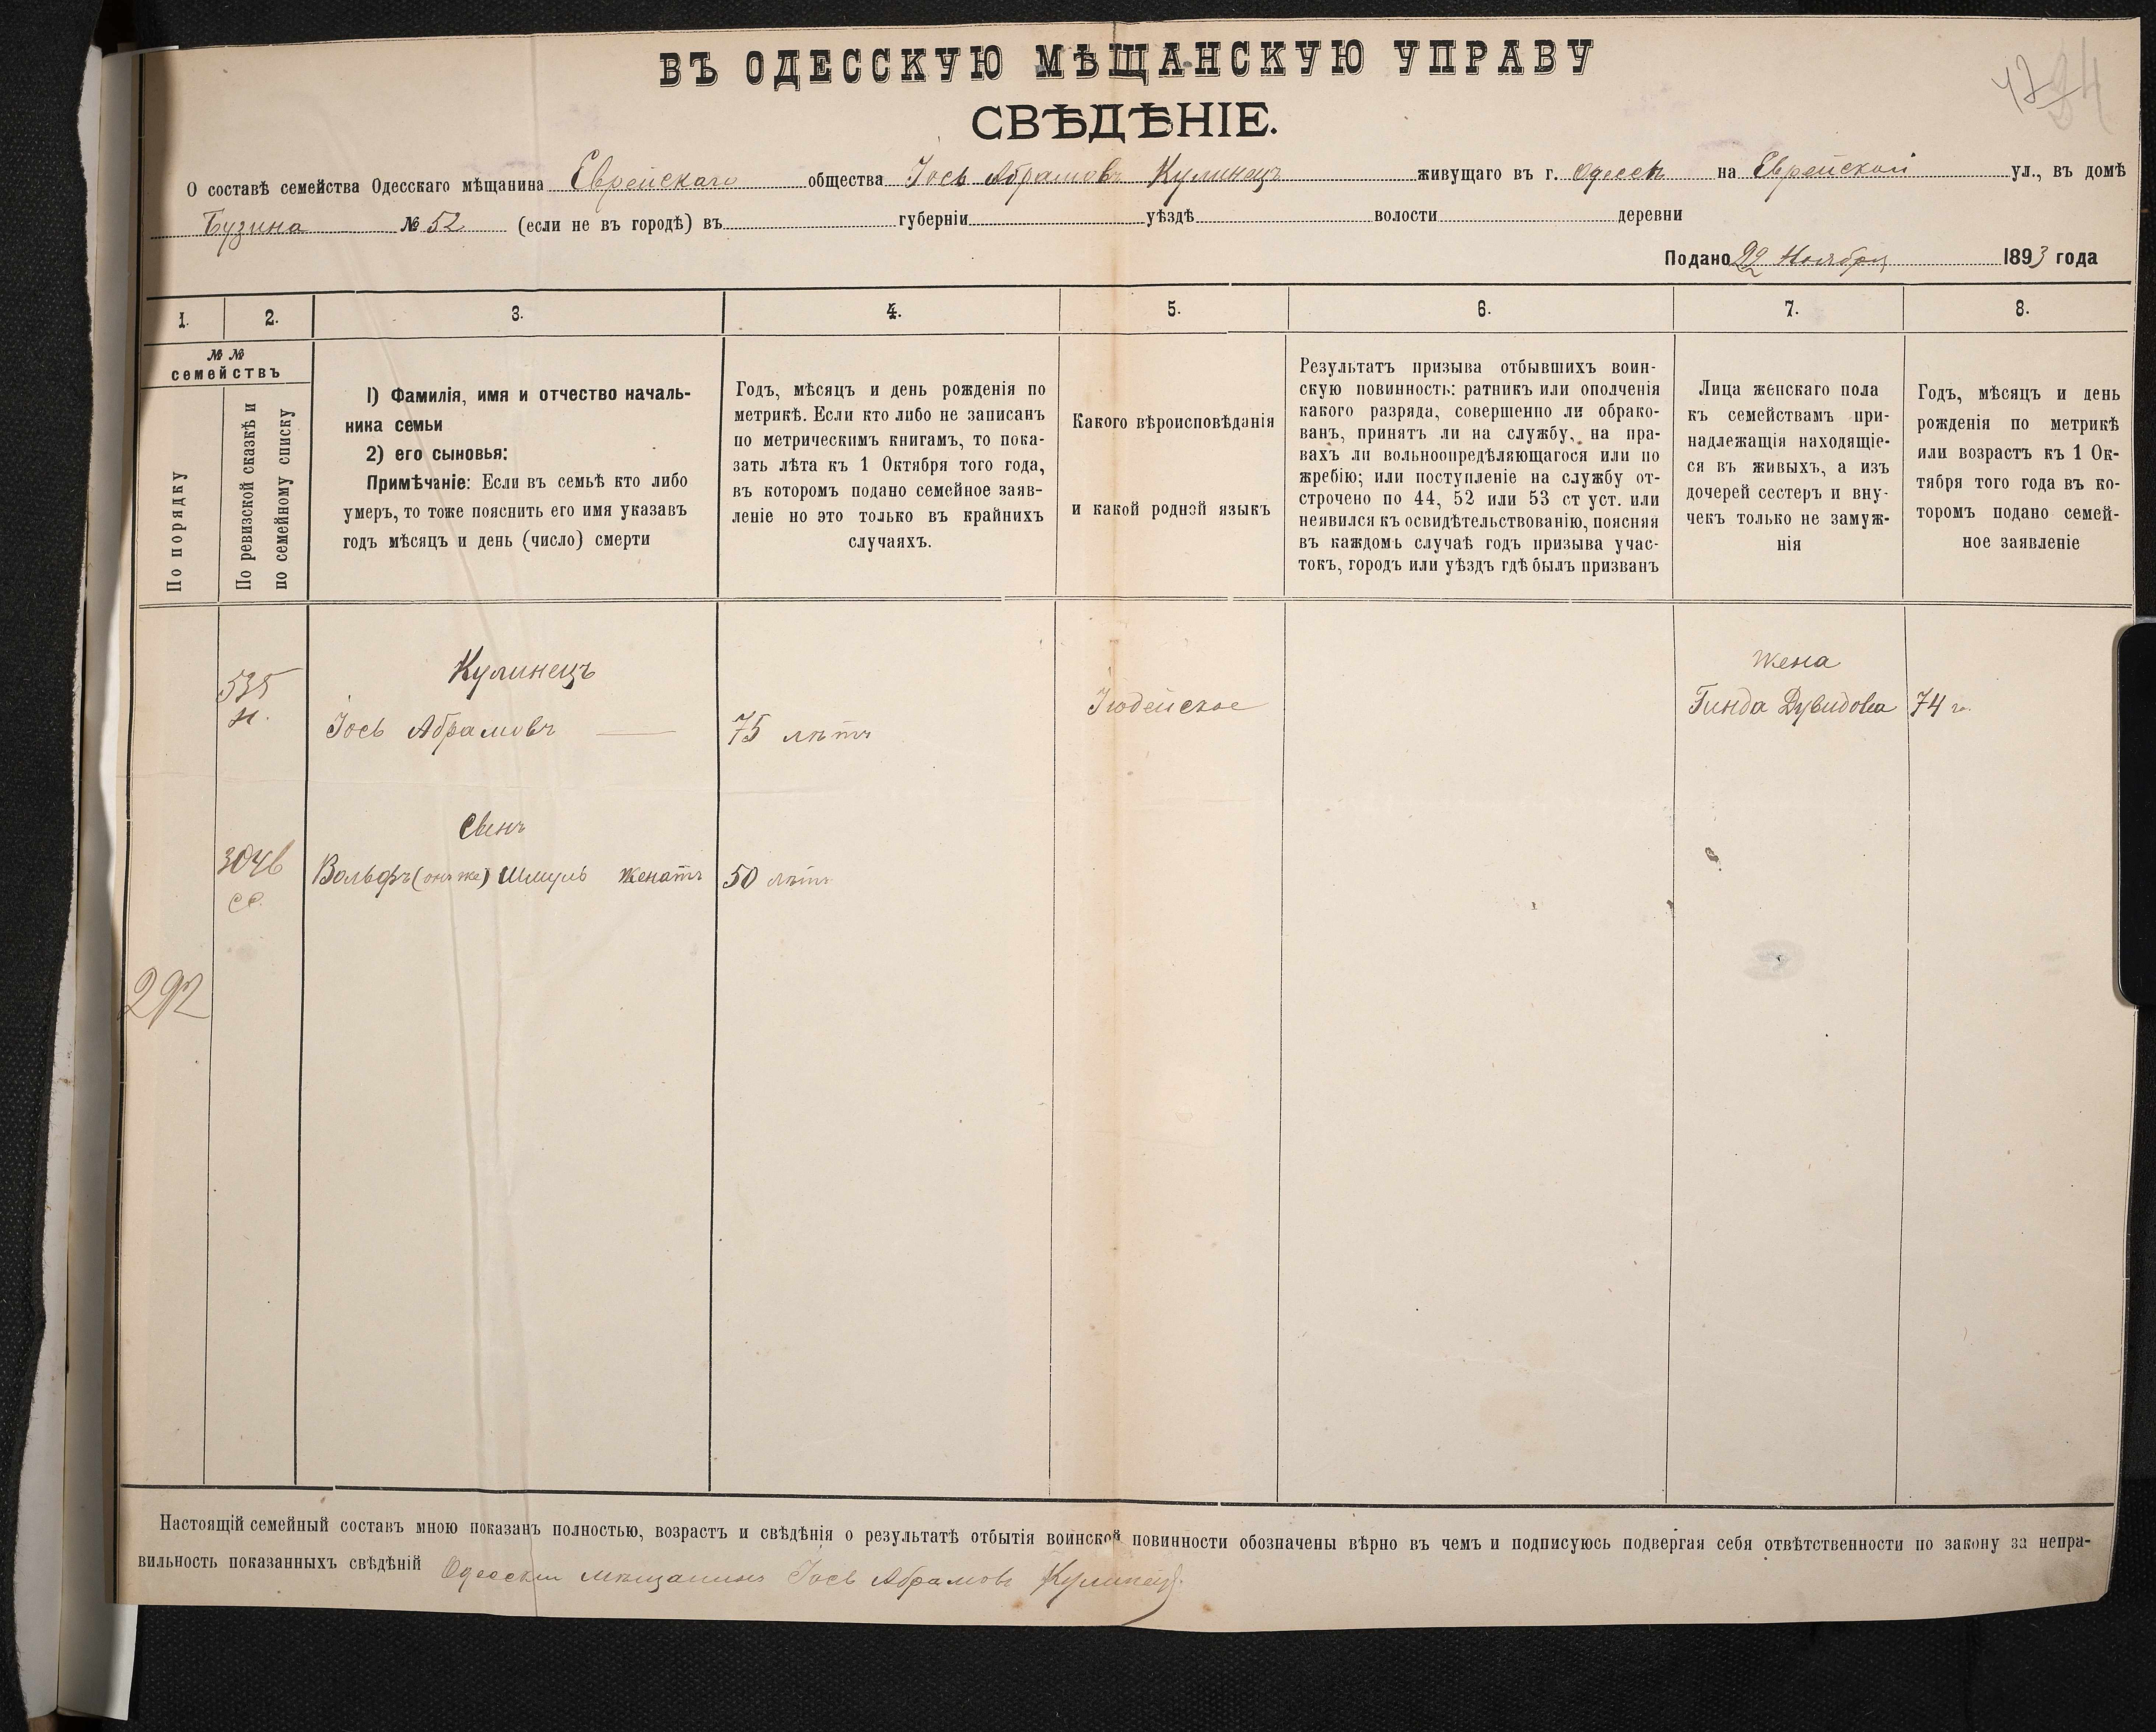 ВЪ ОДЕССКУЮ МѢЩАНСКУЮ УПРАВУ
СВѢДѢНІЕ.
О составѣ семейства Одесскаго мѣщанина Еврейскаго общества Іось Абрамовъ Кулинецъ живущаго въ г. Одессѣ на Еврейской ул., въ домѣ
Бузина № 52 (если не въ городѣ) въ губерніи уѣздѣ волости деревни
Подано 22 Ноября 1893 года
1. 2. 3. 4. 5. 6. 7. 8.
№ №
семействъ
По порядку
По ревизской сказкѣ и
по семейному списку
1) Фамилія, имя и отчество началь-
ника семьи
2) его сыновья:
Примѣчаніе: Если въ семьѣ кто либо
умеръ, то тоже пояснить его имя указавъ
годъ мѣсяцъ и день (число) смерти
Годъ, мѣсяцъ и день рожденія по
метрикѣ. Если кто либо не записанъ
по метрическимъ книгамъ, то пока-
зать лѣта къ 1 Октября того года,
въ которомъ подано семейное заяв-
леніе но это только въ крайнихъ
случаяхъ.
Какого вѣроисповѣданія
и какой родной языкъ
Результатъ призыва отбывшихъ воин-
скую повинность: ратникъ или ополченія
какого разряда, совершенно ли обрако-
ванъ, принятъ ли на службу, на пра-
вахъ ли вольноопредѣляющагося или по
жребію; или поступленіе на службу от-
строчено по 44, 52 или 53 ст уст. или
неявился къ освидѣтельствованію, поясняя
въ каждомъ случаѣ годъ призыва учас-
токъ, городъ или уѣздъ гдѣ былъ призванъ
Лица женскаго пола
къ семействамъ при-
надлежащія находящіе-
ся въ живыхъ, а изъ
дочерей сестеръ и вну-
чекъ только не замуж-
нія
Годъ, мѣсяцъ и день
рожденія по метрикѣ
или возрастъ къ 1 Ок-
тября того года въ ко-
торомъ подано семей-
ное заявленіе
Кулинецъ
жена
535
н.
Іось Абрамовъ 75 лѣтъ
Іюдейское
Гинда Дувидова 74 г.
Сынъ
Вольфъ (онъ же) Шмуль женатъ 50 лѣтъ
292
Настоящій семейный составъ мною показанъ полностью, возрастъ и свѣдѣнія о результатѣ отбытія воинской повинности обозначены вѣрно въ чемъ и подписуюсь подвергая себя отвѣтственности по закону за непра-
вильность показанныхъ свѣдѣній Одесскій мѣщанинъ Іось Абрамовъ Кулинецъ.